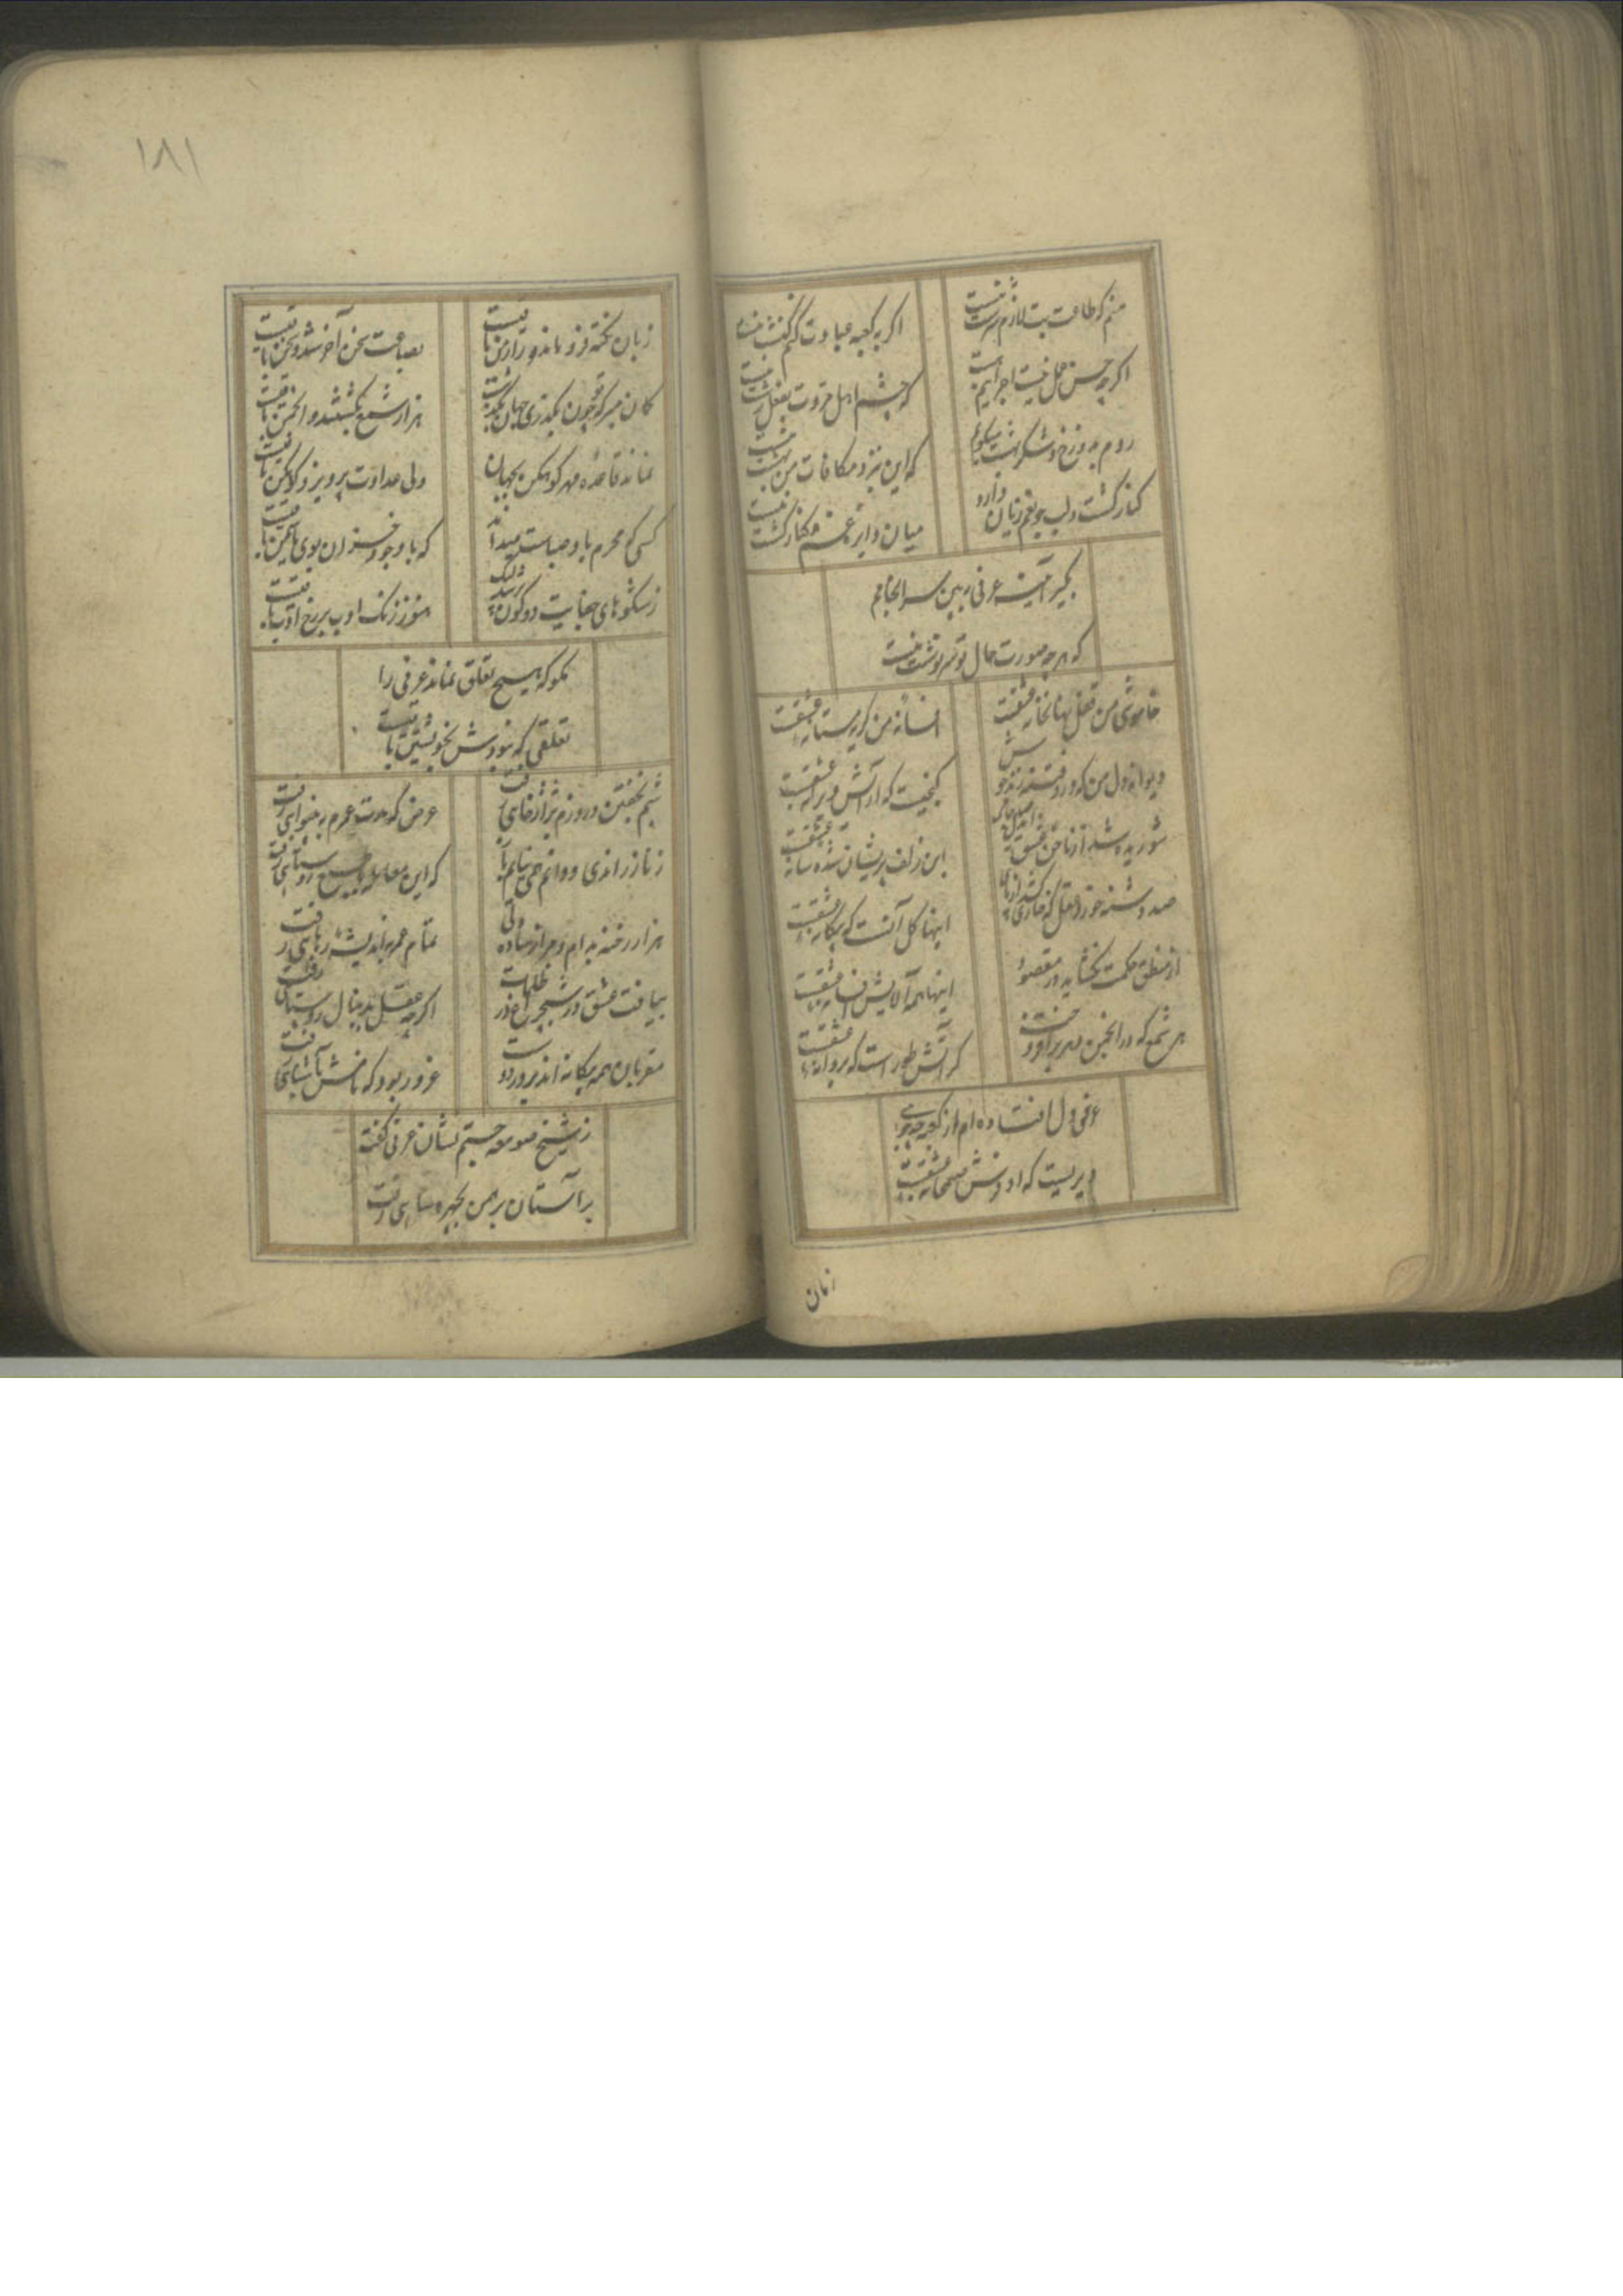 منم که طاعت بت لازم سرشت منست
اگر به کعبه عبادت کنم کنشت منست
اگرچه حسن عمل نیست اجر امیدم هست
که چشم اهل مروت بفعل زشت منست
روم بدوزخ و شکر بهشت میگویم
که این نزد مکافات من بهشت منست
کنار کشت و لب جو بغم زیان دارد
میان وادی غم کنار کشت منست
بگیر آینه عرفی ببین سرانجامم
که هر چه صورت حال تو سرنوشت منست
خاموشی من قفل نهانخانه عشقست
افسانه من گریه مستانه عشقست
دیوانه دل من که درو فتنه زند جوش
گنجیست که آرایش ویرانه عشقست
شوریده شد از ناخن عشق
این زلف پریشان شده شانه عشقست
صد دشنه خورد عقل که خاری کشد از پای
اینها گل آنست که بیگانه عشقست
از منطق و حکمت نگشاید در مقصود
اینها همه آلایش افسانه عشقست
هر شمع که در انجمن دهر برافروخت
گر آتش طور است که پروانه عشقست
عرفی دل افتاده ام از کعبه چه جویی
دیریست که او فرش صنمخانه عشقست
زبان
۱۸۱
زبان نکته فرو ماند و راز من باقیست
بضاعت سخن آخر شد و سخن باقیست
گمان مبر که تو چون بگذری جهان بگذشت
هزار شمع بکشتند و انجمن باقیست
نماند قاعده مهر کوهکن بجهان
ولی عداوت پرویز و کوهکن باقیست
کسی که محرم باد صباست میداند
که با وجود خزان بوی یاسمن باقیست
ز شکوهای جفایت دو کون پر شد لیک
هنوز رنگ ادب بر رخ ادب باقیست
مگو که هیچ تعلق نماند عرفی را
تعلقی که نبودش بخویشتن باقیست
شبم بخفتن و روزم بژاژخایی رفت
عرض که مدت عمرم به بینوایی رفت
ز ناز راندی و دانم نمی نیایم باز
که این معامله
هزار رخنه بدام و مرا ز ساده دلی
تمام عمر باندیشه رهایی رفت
بیافت عشق در شبچراغ در ظلمات
اگرچه عقل بدنبال روشنایی رفت
مقربان همه بیگانه اند بر در دوست
غرور بود که نامش بآشنایی رفت
ز شیخ صومعه جستم نشان عرفی گفت
بر آستان برهمن بچهره سایی رفت